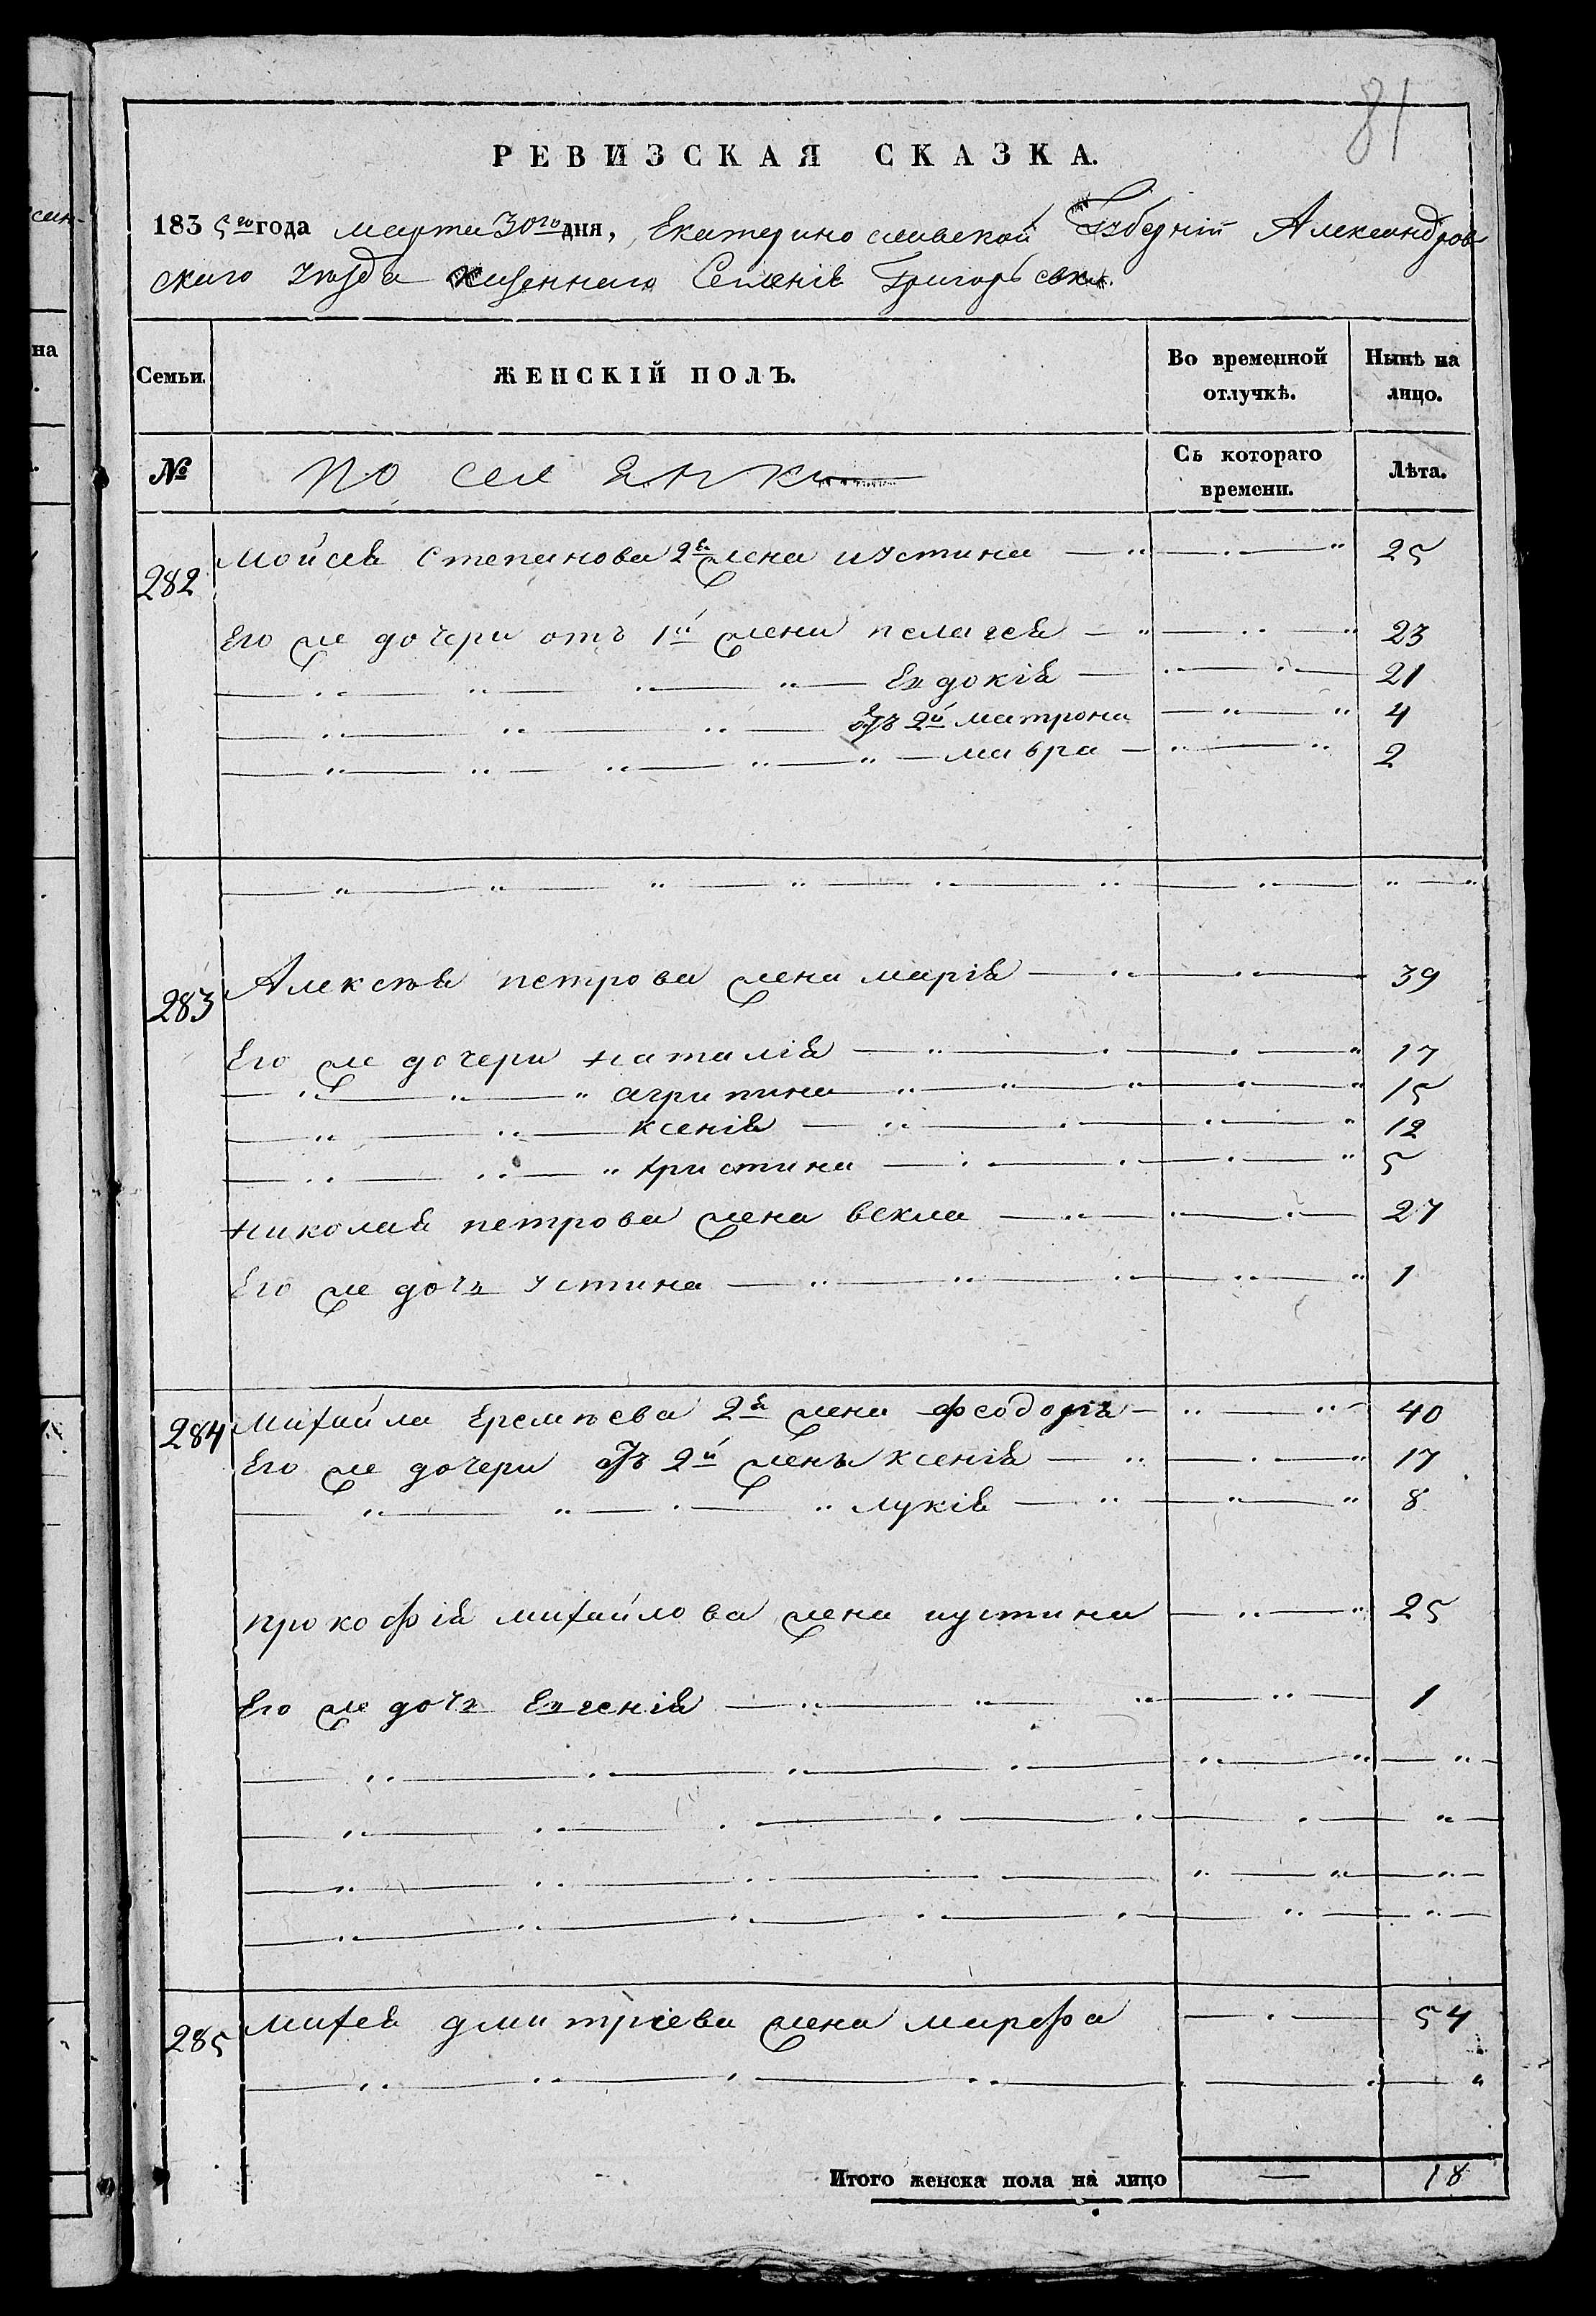 81
РЕВИЗСКАЯ СКАЗКА.
1835го года марта 30го дня, Екатеринославской Губерній Александров
скаго уѣзда казеннаго Селенія Григорьевки.
на
Семьи. ЖЕНСКІЙ ПОЛЪ. Во временной отлучкѣ. Нынѣ на лицо.
№ поселянки Съ котораго времени. Лѣта.
282 Мойсея Степанова 2я жена иустина 25
Его же дочери отъ 1й жени пелагея 23
Евдокія 21
отъ 2й матрона 4
мавра 2
283 Алексѣя петрова жена марія 39
Его же дочери наталія 17
агрипина 15
ксенія 12
христина 5
николая петрова жена векла 27
Его же дочь устина 1
284 михайла Еремѣева 2я жена феодора 40
Его же дочери отъ 2й жены ксенія 17
лукія 8
прокофія михайлова жена иустина 25
Его же дочь Евгенія 1
285 михея дмитріева жена марфа 54
Итого женска пола на лицо — 18